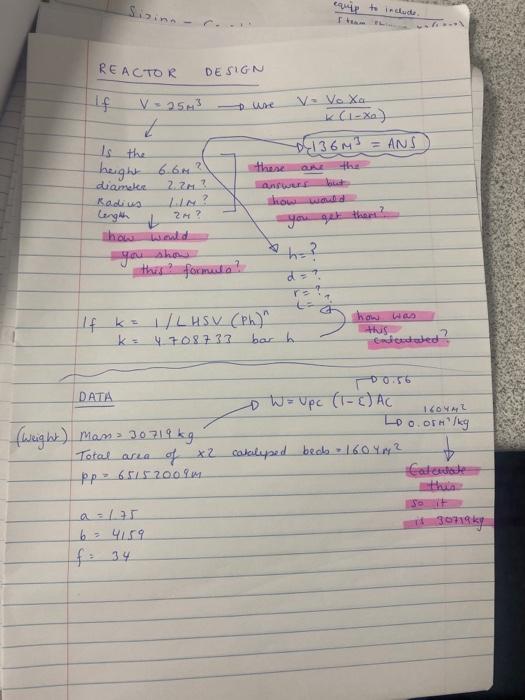 equip to include.
Sizing -
REACTOR DESIGN
If V = 25M³ → use V = Vo Xa / k (1-Xa)
→ 136M³ = ANS
Is the
height 6.6M?
diameter 2.2M?
Radius 1.1M?
length 2M?
these are the
answers but
how would
you get them?
how would
you show
this? formula?
h = ?
d = ?
r = ?
L = ?
If k = 1/LHSV (Ph)ⁿ
k = 4.708733 bar h
how was
this
calculated?
DATA
→ 0.56
→ W = Vpc (1-ε) AC
1604M²
→ 0.05M³/kg
(Weight) Mass = 30719kg
Total area of x2 catalysed beds = 1604M²
pp = 65152009M
Calculate
this
so it
is 30719kg
a = 1.75
b = 4159
f = 34